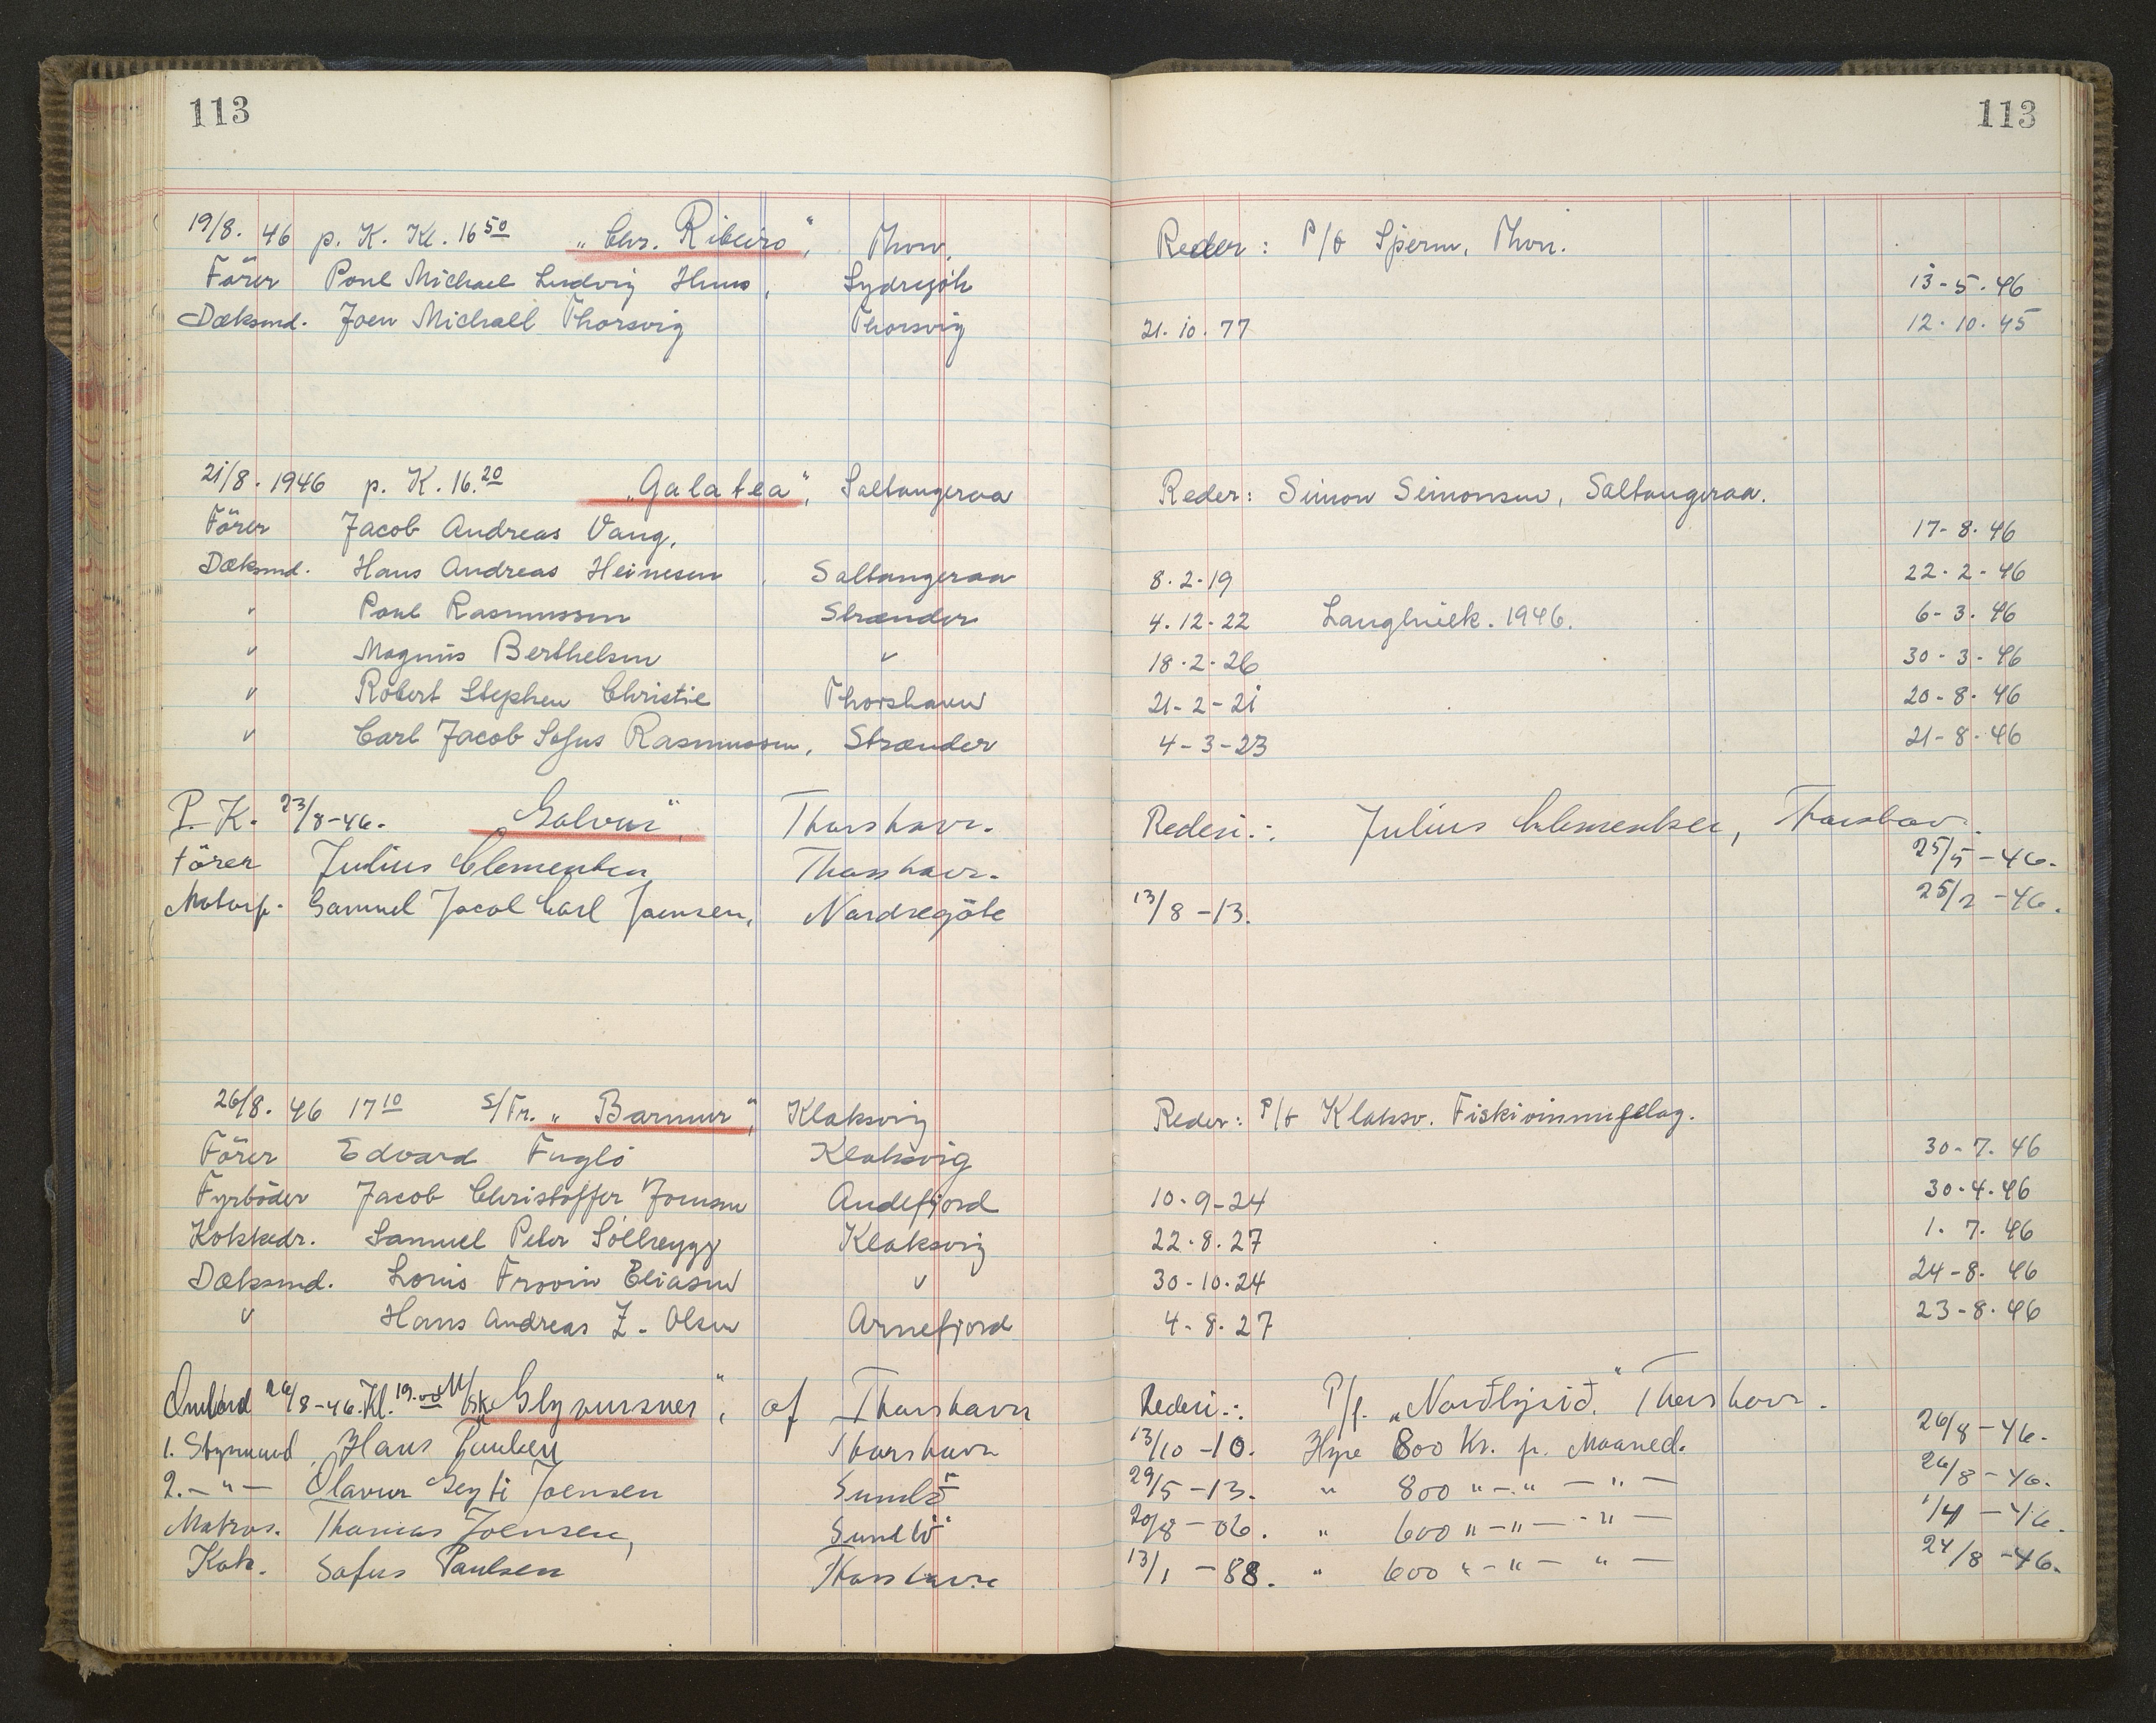 113 113
19/8. 46 p. K. Kl. 16 50 „Chr. Ribeiro", Thvn. Reder: P/f Sperm, Thvn.
Förer Poul Michael Ludvig Sydregöte 13-5-46
Dæksmd. Joen Michael Thorsvig Thorsvig 21.10.77 12.10.45
21/8. 1946 p. K. 16.20 „Galatea", Saltangeraa Reder: Simon Simonsen, Saltangeraa.
Förer Jacob Andreas Vang, 17-8.46
Dæksmd. Hans Andreas Heinesen Saltangeraa 8.2-19 22-2-46
" Poul Rasmussen Strænder 4.12-22 1946. 6-3.46
" Magnus Berthelsen " 18.2-26 30-3-46
" Robert Stephen Christie Thorshavn 21-2-21 20-8.46
" Carl Jacob Sofus Rasmussen, Strænder 4-3-23 21-8.46
P. K. 23/8-46. Thorshavn. Rederi.: Julius Clementsen, Thorshavn.
Förer Julius Clementsen Thorshavn. 25/5-46.
Motorp. Samuel Jacob Carl Joensen, Nordregöte 13/8-13. 25/2-46.
26/8. 46 17 10 S/Tr. „Barmur", Klaksvig Reder: P/f Klaksv. Fiskivinnufelag.
Förer Edvard Fuglö Klaksvig 30-7.46
Fyrböder Jacob Christoffer Joensen Andefjord 10-9-24 30.4.46
Kokkedr. Samuel Peter Sólheygg Klaksvig 22.8.27 1. 7. 46
Dæksmd. Louis Frovin Eliasen " 30-10.24 24-8. 46
" Hans Andreas Z. Olsen Arnefjord 4-8.27 23-8.46
Ombord 26/8-46. Kl. 19.00 M/Sk. „Glyvursnes", af Thorshavn Rederi.: P/f. „Norðlýsið," Thorshavn.
1. Styrmand Hans Paulsen Thorshavn 13/10-10. Hyre 800 Kr. p. Maaned. 26/8-46.
2. -"- Olavur Geyti Joensen Sundö 29/5-13. " 800 "-"-"- 26/8-46.
Matros. Thomas Joensen, Sundö 20/8-06. " 600 "-"-"- 1/4-46.
Kok. Sofus Paulsen Thorshavn 13/1-88. " 600 "-"-"- 24/8-46.